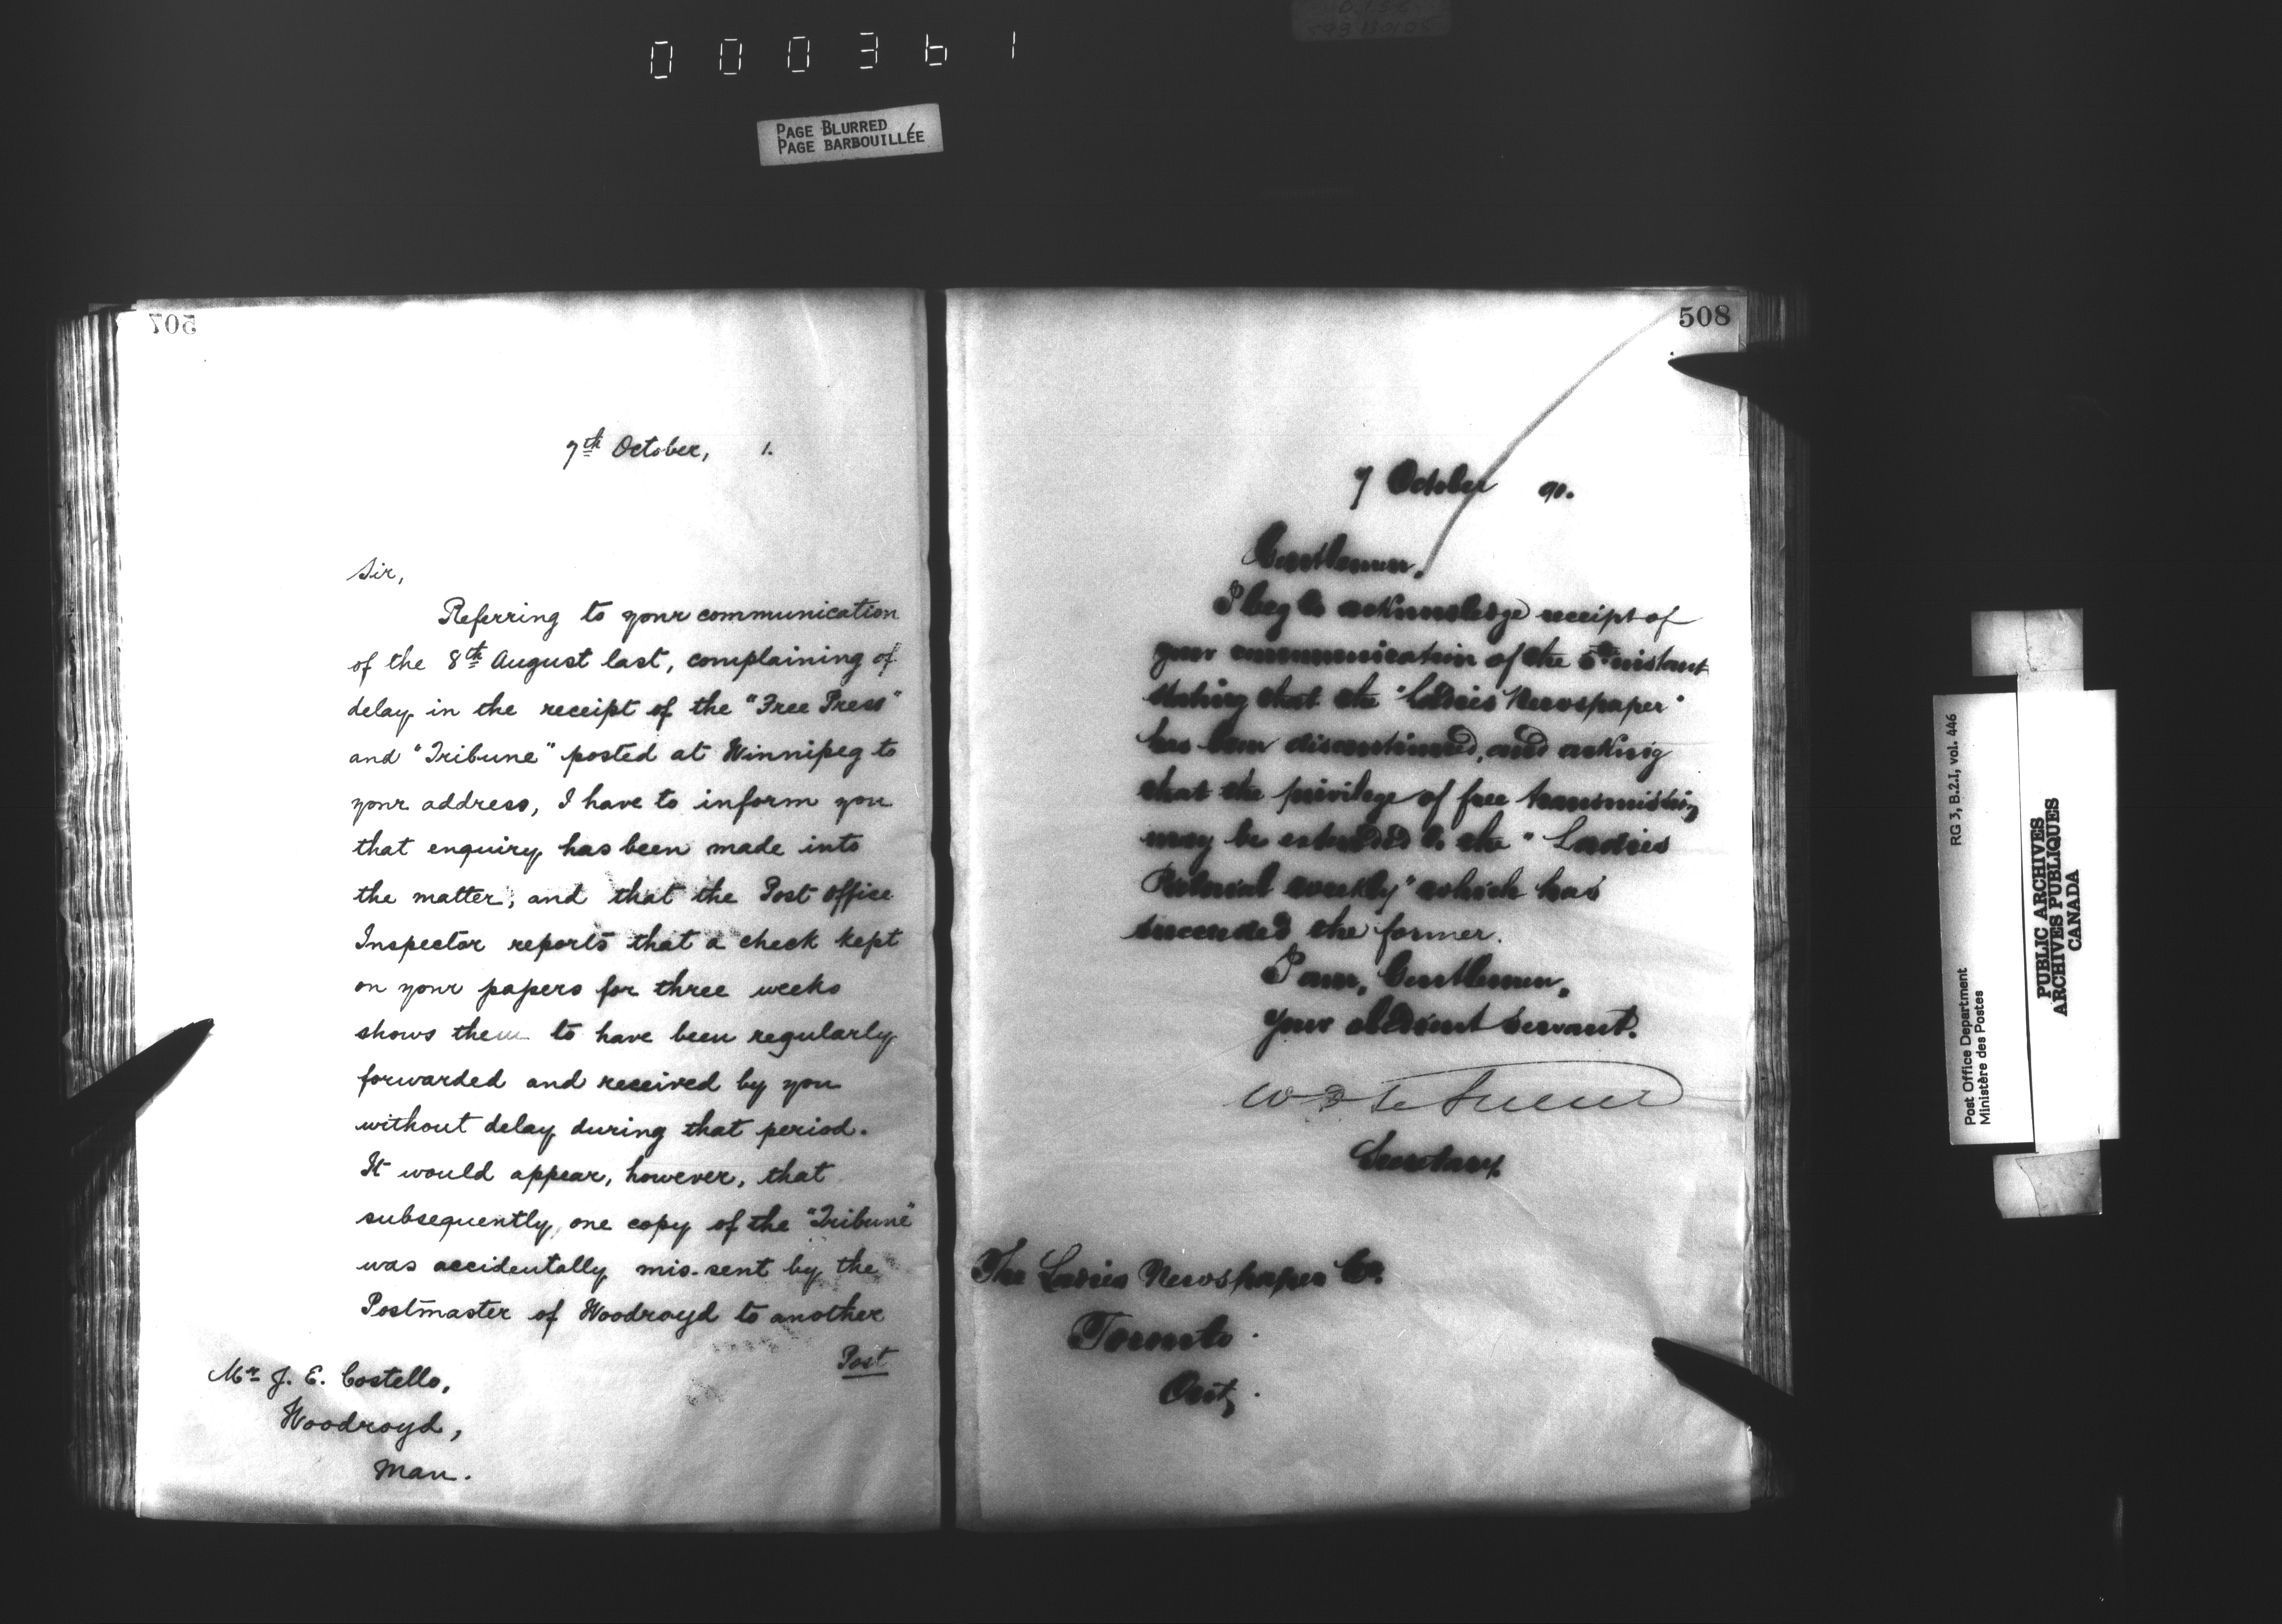 000361
PAGE BLURRED
PAGE BARBOUILLÉE
507
7th October, 1.
Sir,
Referring to your communication
of the 8th August last, complaining of
delay in the receipt of the "Free Press"
and "Tribune" posted at Winnipeg to
your address, I have to inform you
that enquiry has been made into
the matter, and that the Post Office
Inspector reports that a check kept
on your papers for three weeks
shows them to have been regularly
forwarded and received by you
without delay during that period.
It would appear, however, that
subsequently, one copy of the "Tribune"
was accidentally mis-sent by the
Postmaster of Woodroyd to another
Post
Mr J. E. Costello,
Woodroyd,
Man.
508
7 October 90.
Gentlemen,
I beg to acknowledge receipt of
your communication of the 5th instant
stating that the "Ladies Newspaper"
has been discontinued, and asking
that the privilege of free transmission
may be extended to the "Ladies
Pictorial weekly" which has
succeeded the former.
I am, Gentlemen,
Your obedient Servant.
W D LeSueur
Secretary.
The Ladies Newspaper Co.
Toronto.
Ont.
RG 3, B.2.I, vol. 446
Post Office Department
Ministère des Postes
PUBLIC ARCHIVES
ARCHIVES PUBLIQUES
CANADA